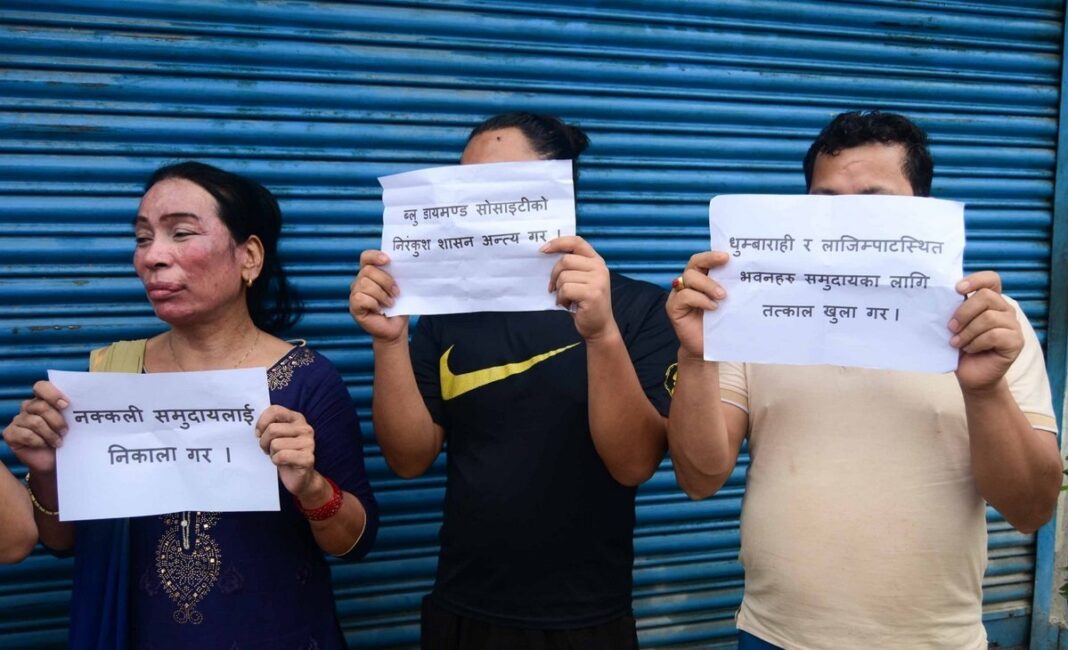 नक्कली समुदायलाई
निकाला गर ।
ब्लु डायमण्ड सोसाइटीको
निरंकुश शासन अन्त्य गर ।
धुम्बाराही र लाजिम्पाटस्थित
भवनहरु समुदायका लागि
तत्काल खुला गर ।